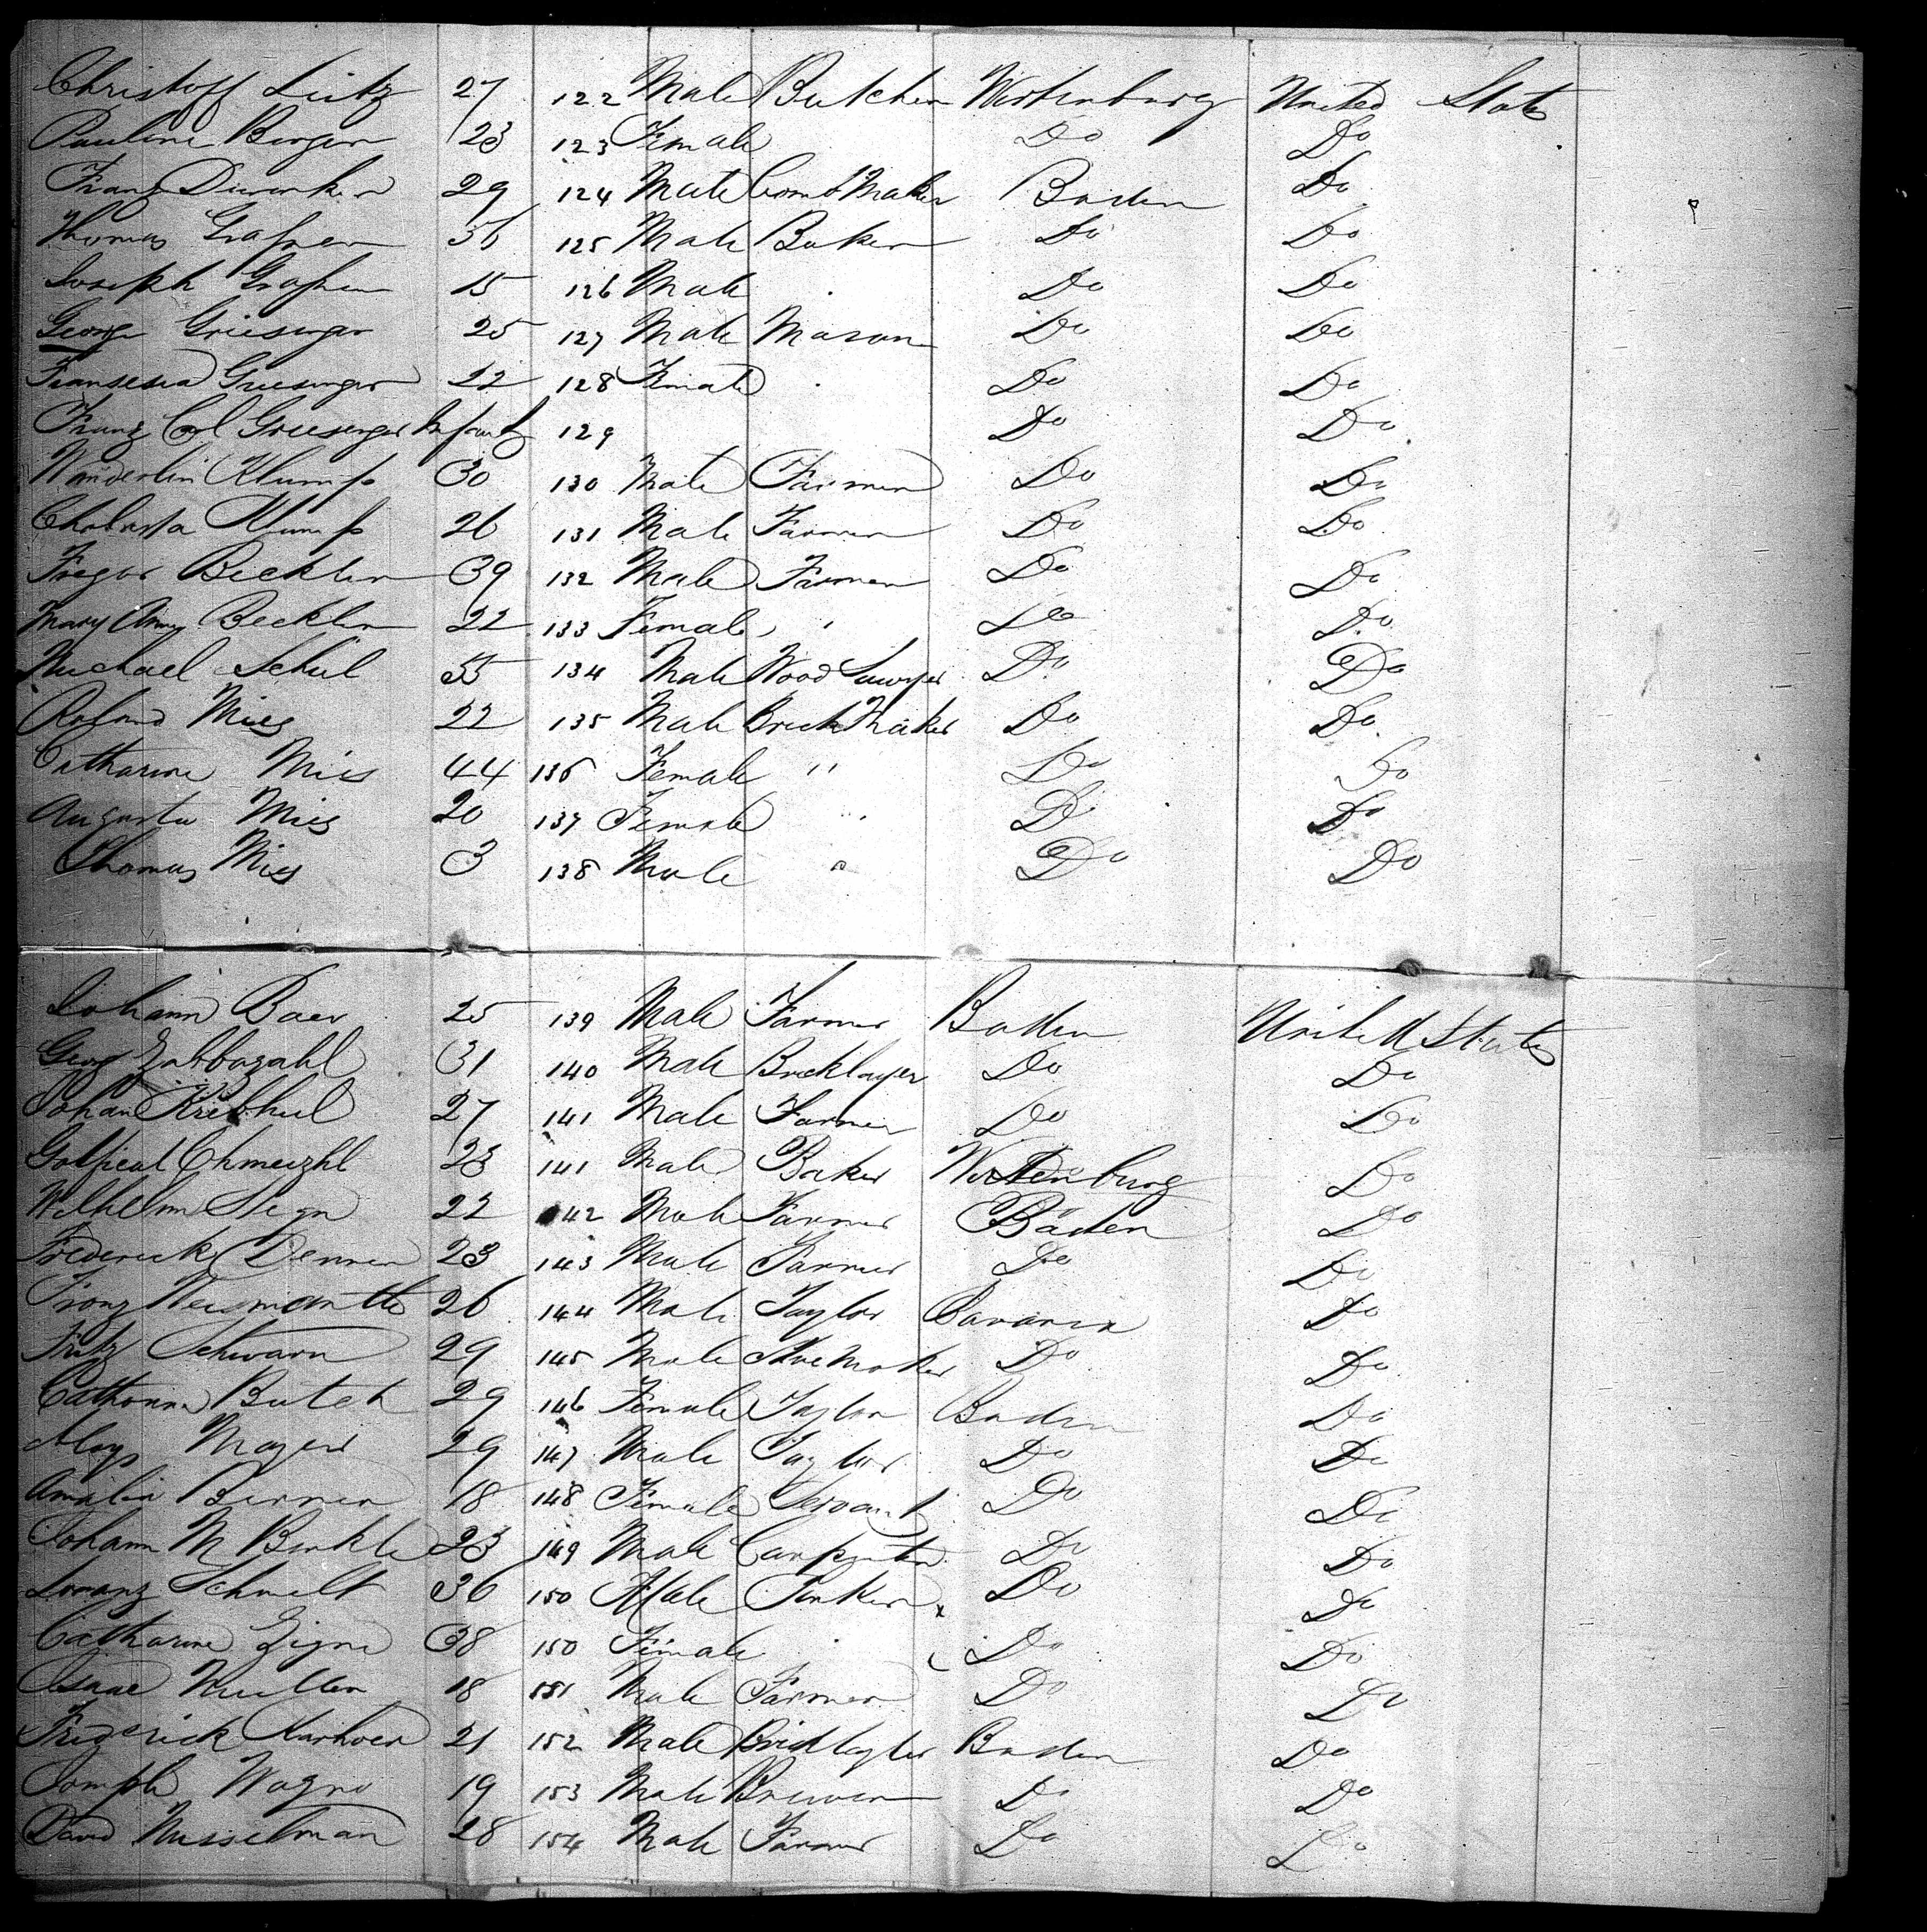 Christoff Lutz 27 122 Male Butcher Wirtenburg United States
Pauline Berger 23 123 Female Do Do
Franz 29 124 Male Comb Maker Baden Do
Thomas Grafner 36 125 Male Baker Do Do
Joseph Grafner 15 126 Male Do Do
George Griesenger 25 127 Male Mason Do Do
Fransesca Griesenger 22 128 Female Do Do
Franz Carl Griesenger Infant 129 Do Do
Wanderlin Klumpp 30 130 Male Farmer Do Do
Klumpp 26 131 Male Farmer Do Do
Fregor Beckler 39 132 Male Farmer Do Do
Mary Ann Beckler 22 133 Female Do Do
Michael Schul 55 134 Male Wood Sawyer Do Do
Mies 22 135 Male Brick Maker Do Do
Catharine Mies 44 136 Female " Do Do
Augusta Mies 20 137 Female " Do Do
Thomas Mies 3 138 Male " Do Do
Johann Baer 25 139 Male Farmer Baden United States
Georg 31 140 Male Bricklayer Do Do
Johan Krebhul 27 141 Male Farmer Do Do
23 141 Male Baker Wirtenburg Do
Wilhelm Stern 22 142 Male Farmer Baden Do
Frederick Denner 23 143 Male Farmer Do Do
Franz Weismantle 26 144 Male Taylor Bavaria Do
Fritz Schwarn 29 145 Male Shoe Maker Do Do
Catharina Butch 29 146 Female Taylor Baden Do
Aloys Mayer 29 147 Male Taylor Do Do
Amalia Berner 18 148 Female Servant Do Do
Johann M Binkle 23 149 Male Carpenter Do Do
Loranz Schmelt 36 150 Male Do Do
Catharine Zigne 38 150 Female Do Do
Isaac Muller 18 151 Male Farmer Do Do
Friderick 21 152 Male Bricklayer Baden Do
Joseph Wagner 19 153 Male Brewer Do Do
David Musselman 28 154 Male Farmer Do Do